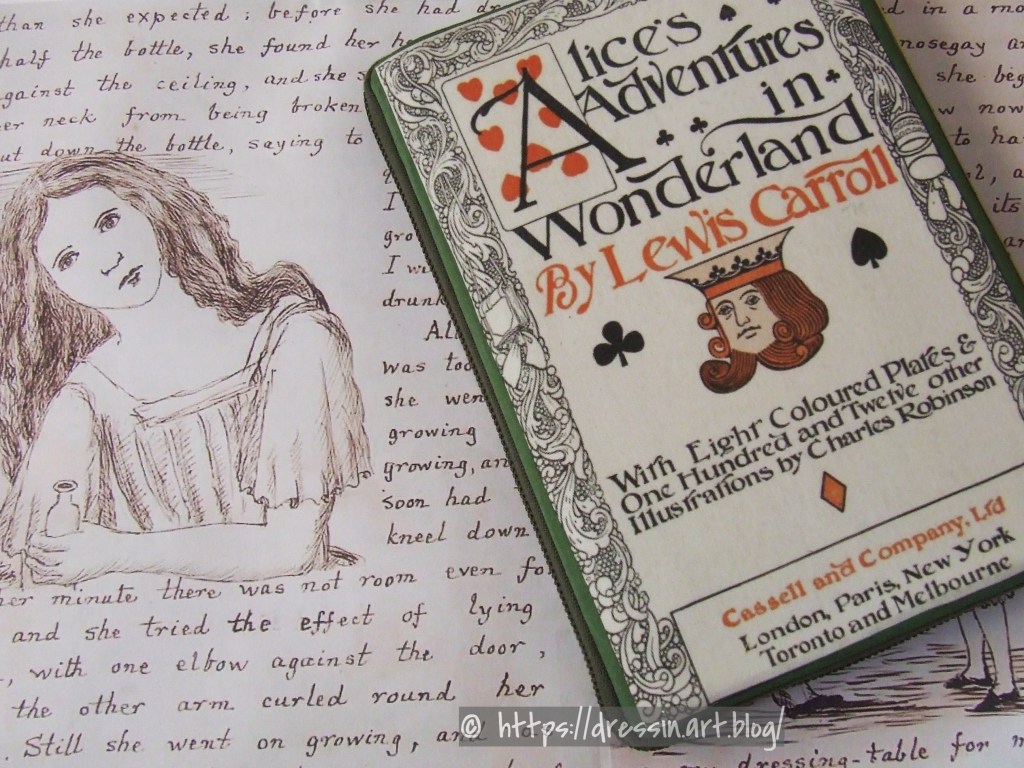 than she expected; before she had
half the bottle, she found her
against the ceiling, and she
her neck from being broken
put down the bottle, saying to
drunk
was too
she went
growing
growing, an
soon had
kneel down
minute there was not room even
and she tried the effect of lying
, with one elbow against the door,
the other arm curled round her
Still she went on growing, and
Alice's
Adventures
in
Wonderland
By Lewis Carroll
With Eight Coloured Plates &
One Hundred and Twelve other
Illustrations by Charles Robinson
Cassell and Company, Ltd
London, Paris, New York
Toronto and Melbourne
in a
nosegay
she
now
to
its
dressing-table for
© https://dressinart.blog/